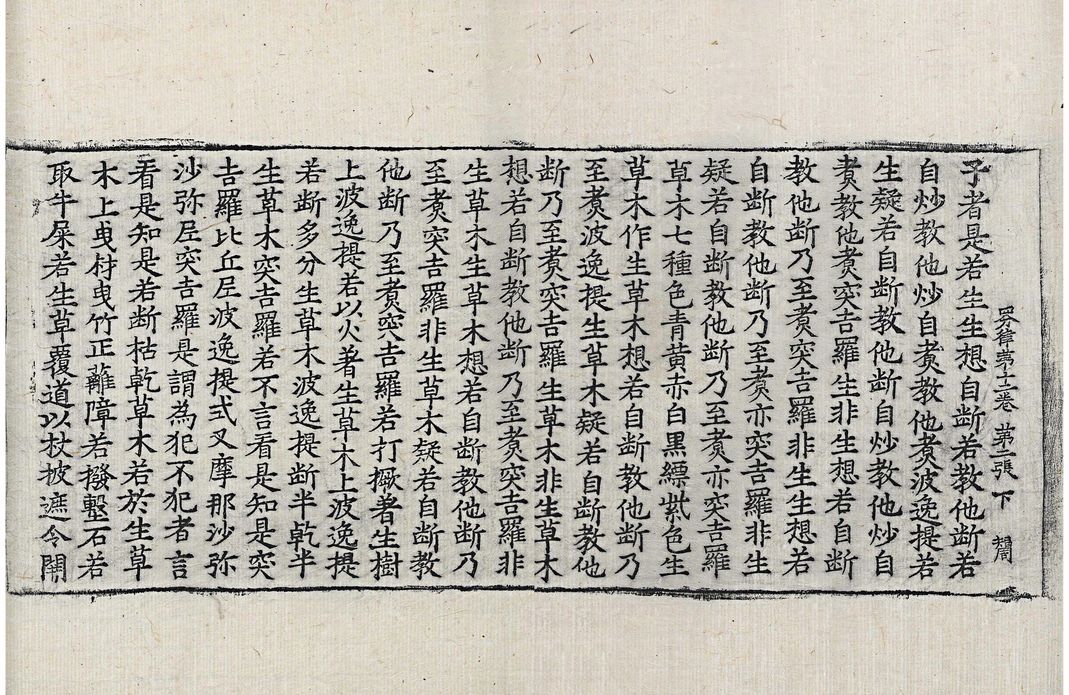 律苐十二卷 苐二張 下
子者是若生生想自断若教他断若
自炒教他炒自煑教他煑波逸提若
生疑若自断教他断自炒教他炒自
煑教他煑突吉羅生非生想若自断
教他断乃至煑突吉羅非生生想若
自断教他断乃至煑亦突吉羅非生
疑若自断教他断乃至煑亦突吉羅
草木七種色青黄赤白黒縹紫色生
草木作生草木想若自断教他断乃
至煑波逸提生草木疑若自断教他
断乃至煑突吉羅生草木非生草木
想若自断教他断乃至煑突吉羅非
生草木生草木想若自断教他断乃
至煑突吉羅非生草木疑若自断教
他断乃至煑突吉羅若打橛著生樹
上波逸提若以火著生草木上波逸提
若断多分生草木波逸提断半乾半
生草木突吉羅若不言看是知是突
吉羅比丘尼波逸提式叉摩那沙弥
沙弥尼突吉羅是謂為犯不犯者言
看是知是若断枯乾草木若於生草
木上曳材曳竹正蘺障若撥墼石若
取牛屎若生草覆道以杖披遮令開